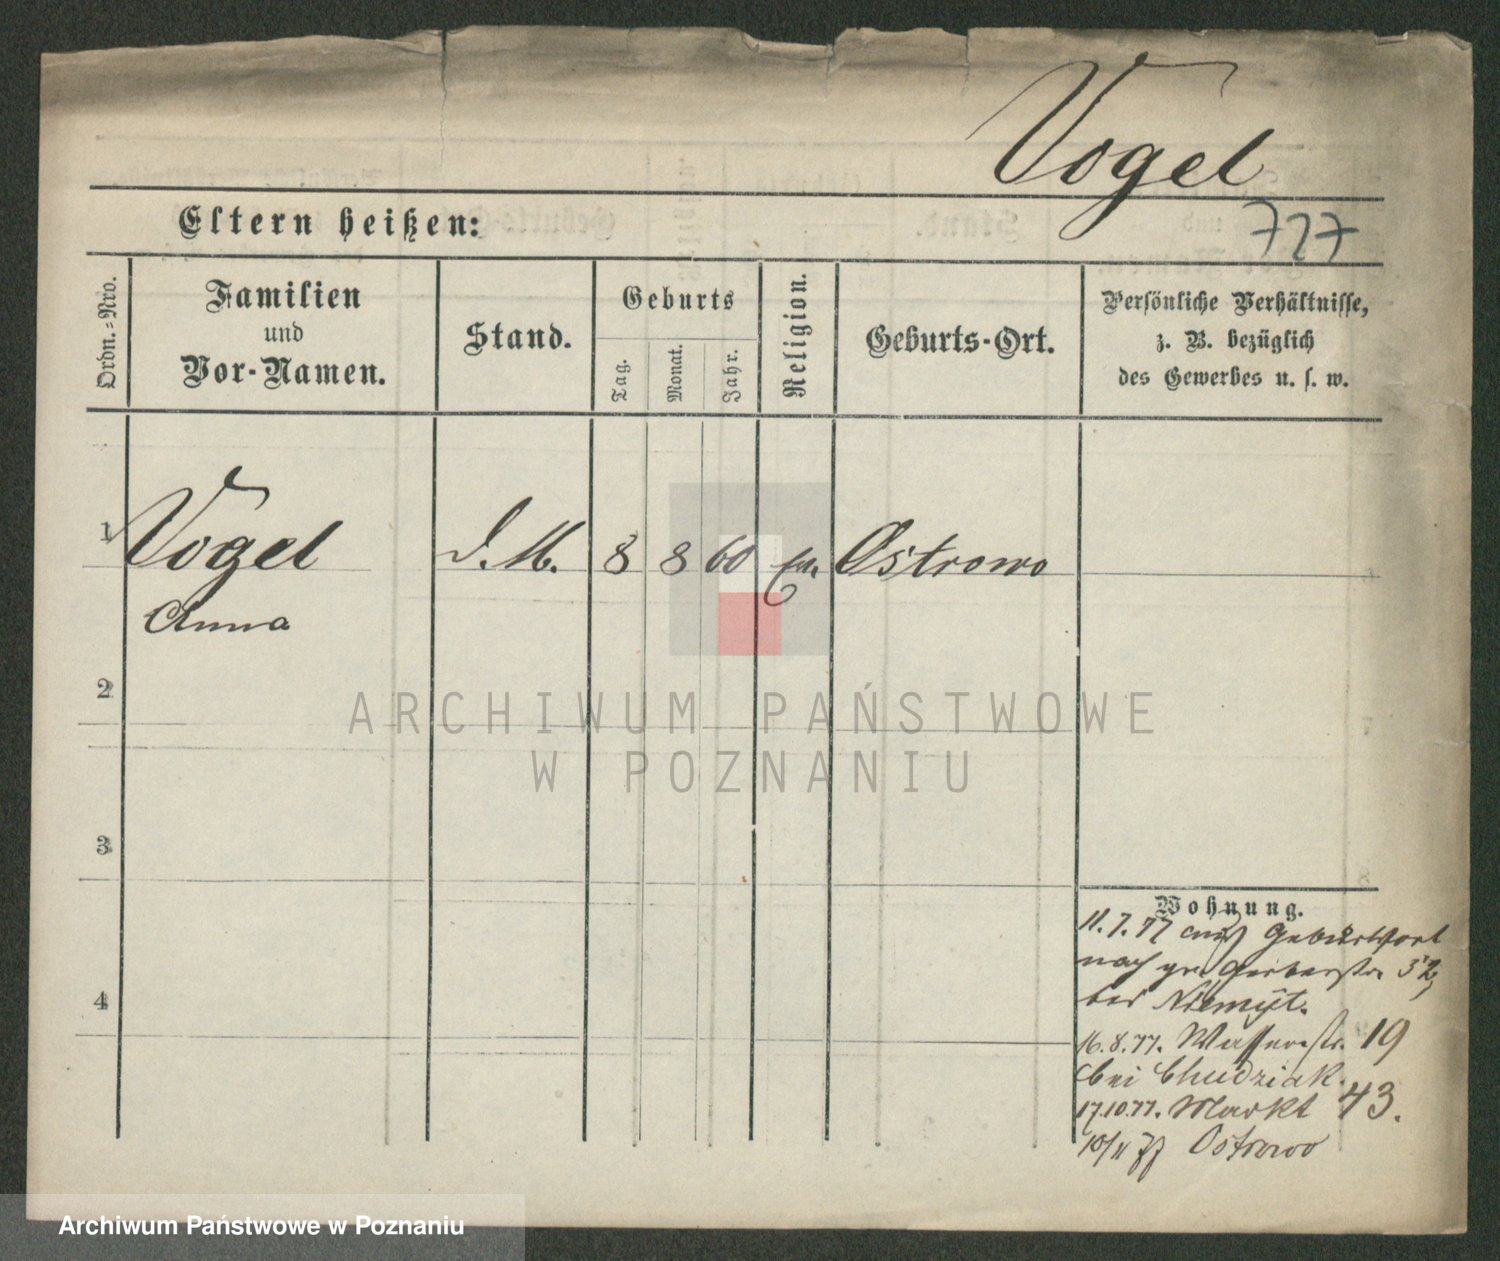 Vogel
727
Eltern heißen:
Ordn.-Nro.
Familien
und
Vor-Namen.
Stand.
Geburts
Tag.
Monat.
Jahr.
Religion.
Geburts-Ort.
Persönliche Verhältnisse,
z. B. bezüglich
des Gewerbes u. s. w.
1 Vogel D. M. 8 8 60 Ostrowo
Anna
2
3
4
Wohnung.
11.7.77 aus Geburtsort
nach gr. Gerberstr. 32,
bei Niemyt.
16.8.77. Wasserstr. 19
bei Chudziak.
17.10.77. Markt 43.
10/11 77 Ostrowo
ARCHIWUM PAŃSTWOWE
W POZNANIU
Archiwum Państwowe w Poznaniu